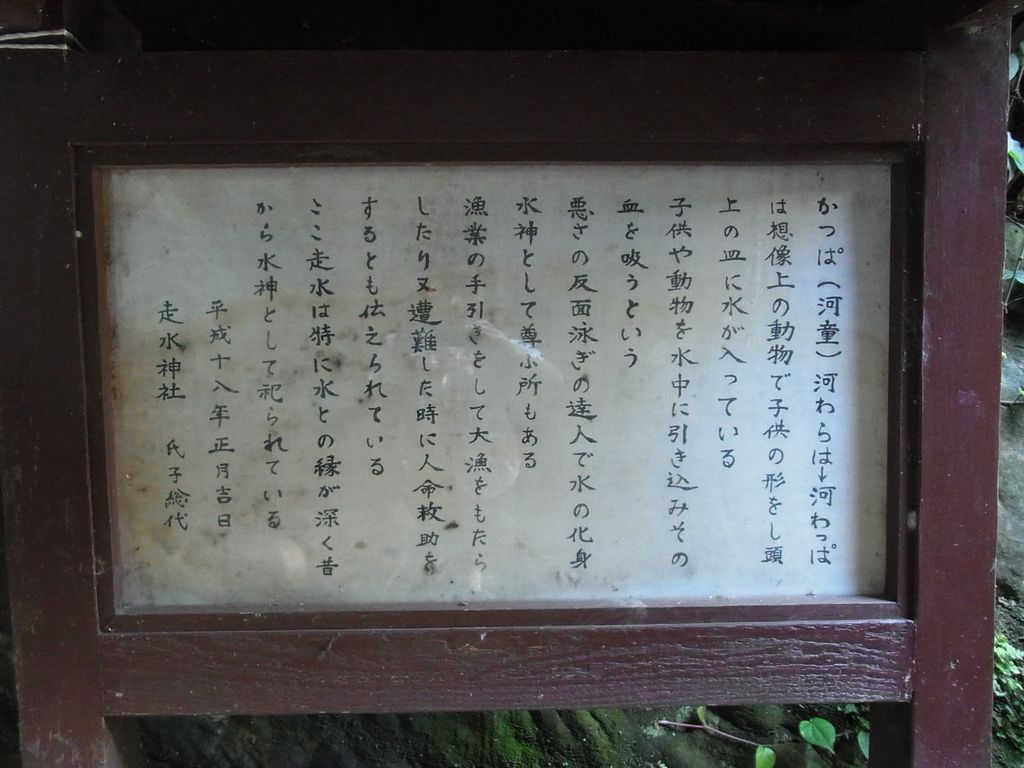 かっぱ(河童)河わらは→河わっぱ
は想像上の動物で子供の形をし頭
上の皿に水が入っている
子供や動物を水中に引き込みその
血を吸うという
悪さの反面泳ぎの達人で水の化身
水神として尊ぶ所もある
漁業の手引きをして大漁をもたら
したり又遭難した時に人命救助を
するとも伝えられている
ここ走水は特に水との縁が深く昔
から水神として祀られている
平成十八年正月吉日
走水神社 氏子総代